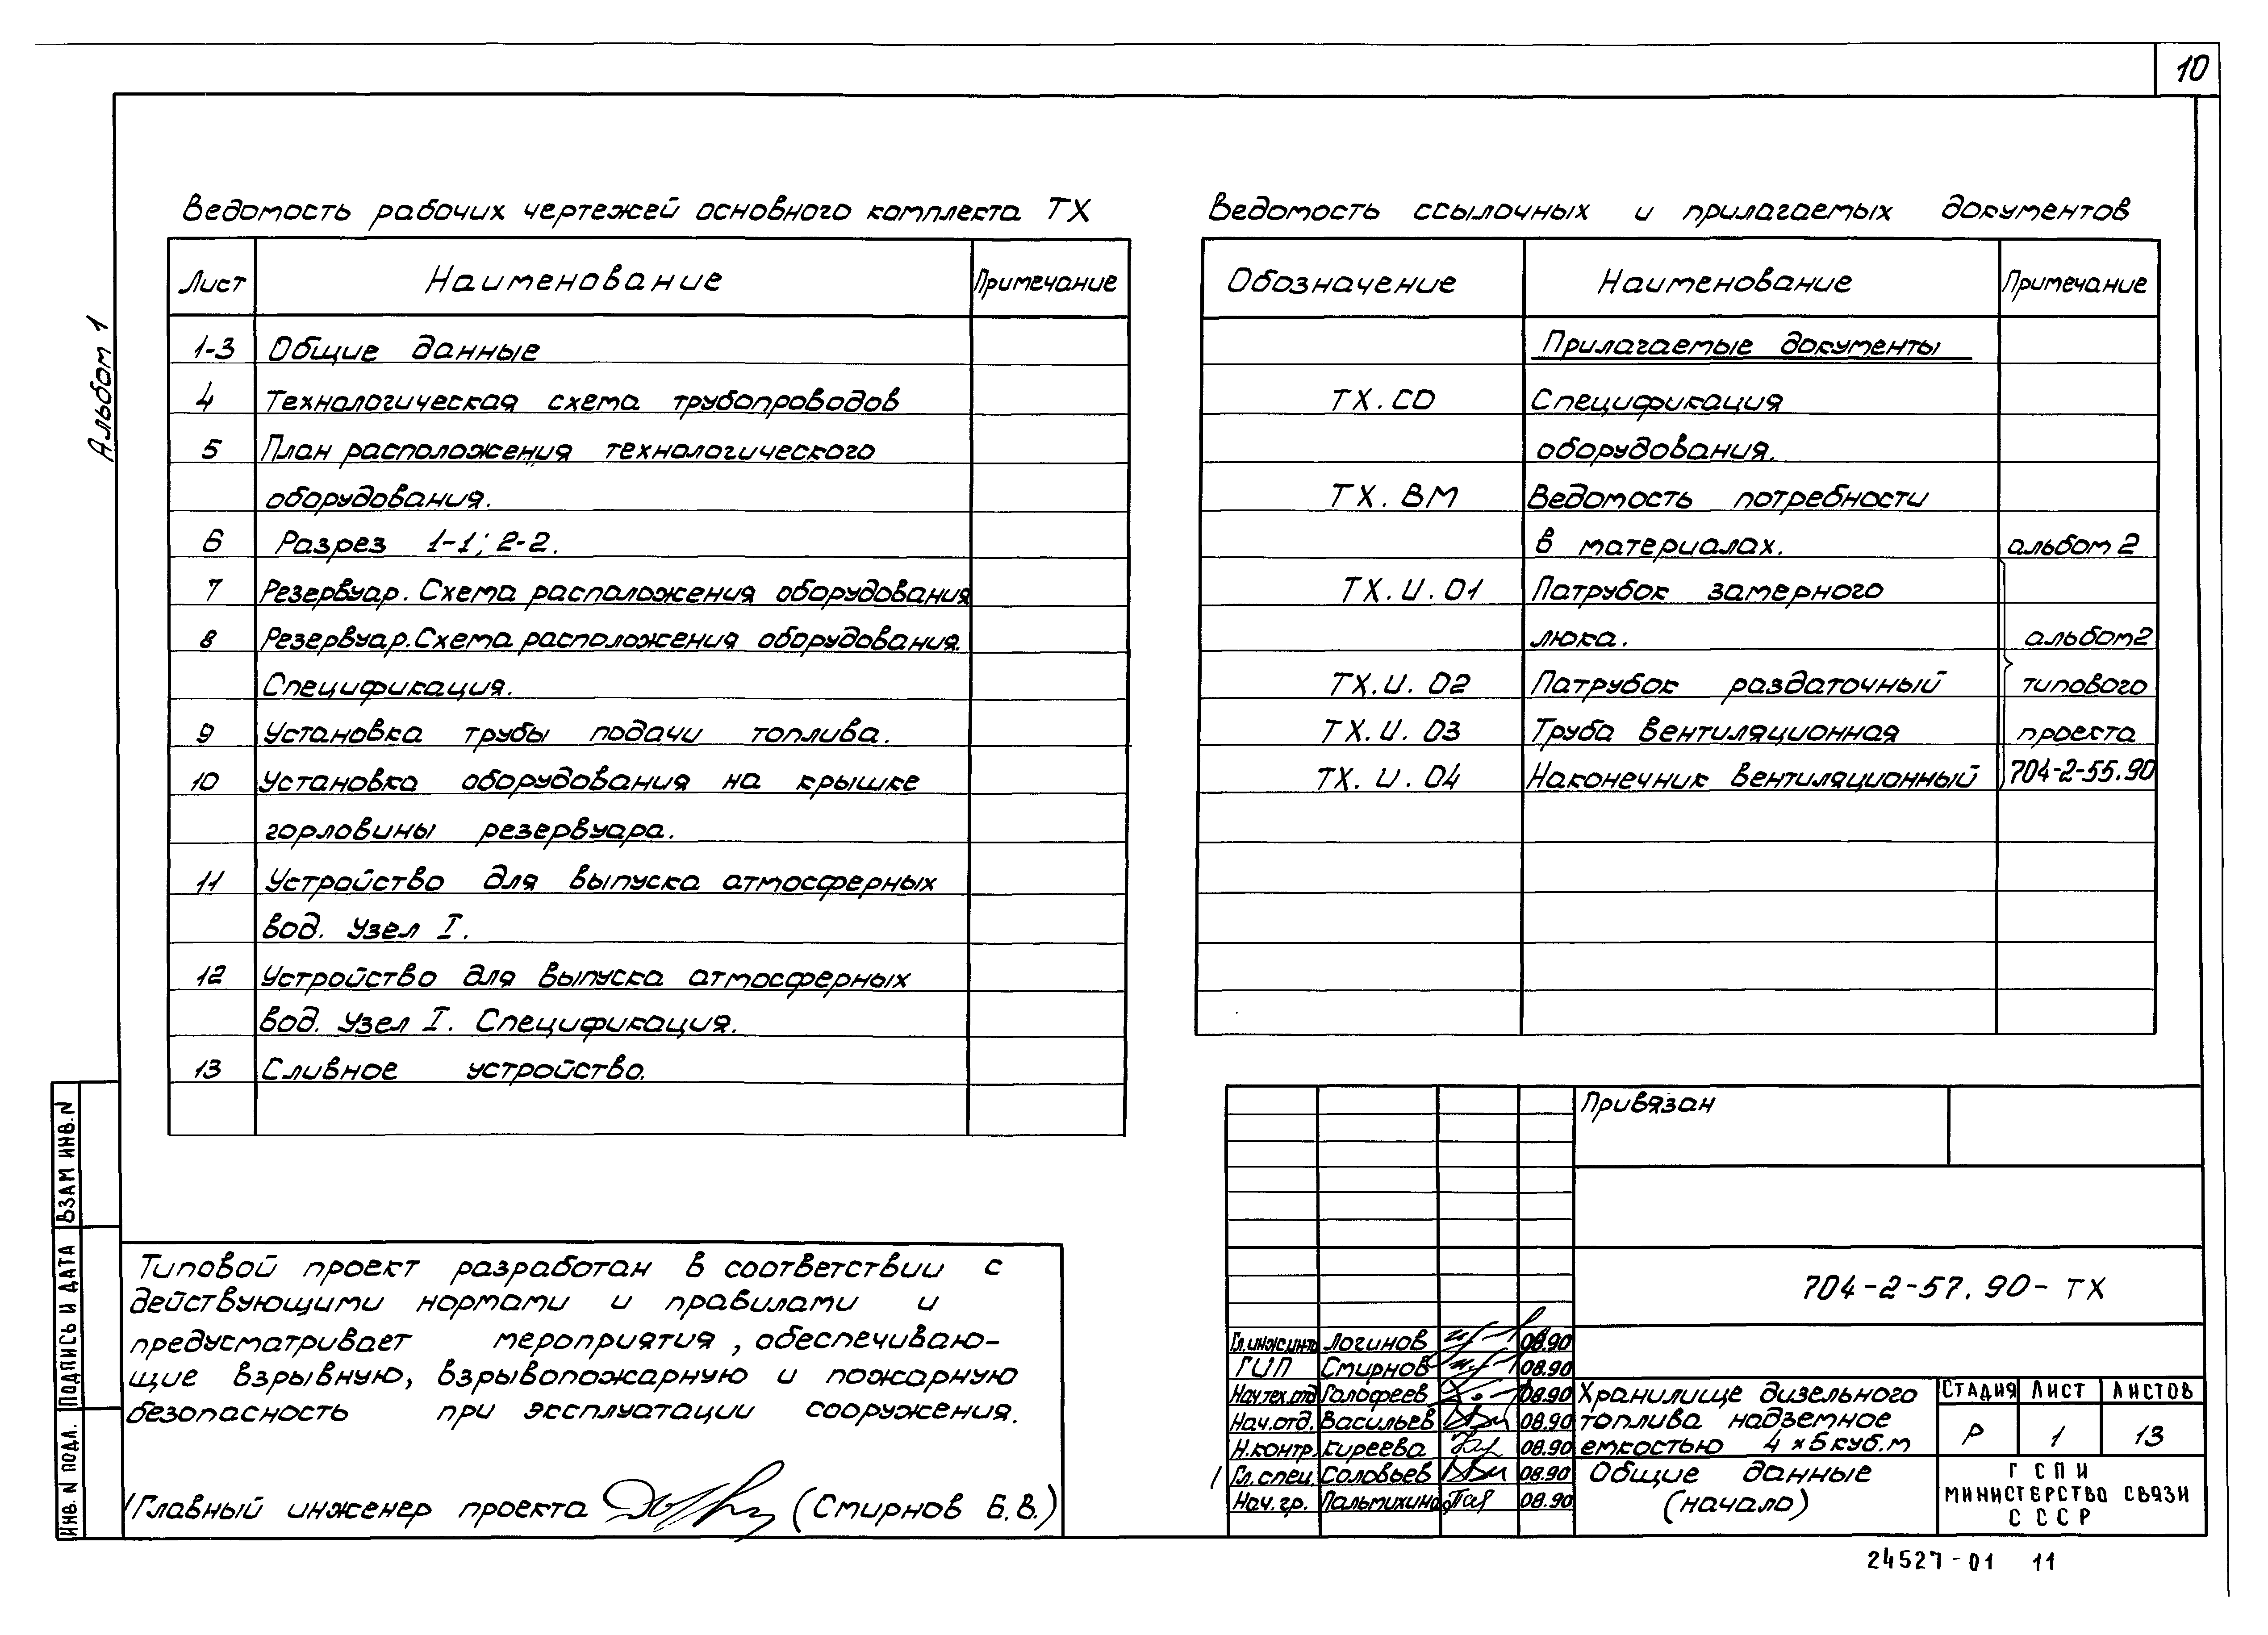 10
Альбом 1
Ведомость рабочих чертежей основного комплекта ТХ
Лист Наименование Примечание
1-3 Общие данные
4 Технологическая схема трубопроводов
5 План расположения технологического
оборудования.
6 Разрез 1-1; 2-2.
7 Резервуар. Схема расположения оборудования
8 Резервуар. Схема расположения оборудования.
Спецификация.
9 Установка трубы подачи топлива.
10 Установка оборудования на крышке
горловины резервуара.
11 Устройство для выпуска атмосферных
вод. Узел I.
12 Устройство для выпуска атмосферных
вод. Узел I. Спецификация.
13 Сливное устройство.
Ведомость ссылочных и прилагаемых документов
Обозначение Наименование Примечание
Прилагаемые документы
ТХ.СО Спецификация
оборудования.
ТХ.ВМ Ведомость потребности
в материалах. альбом 2
ТХ.И.01 Патрубок замерного
люка. альбом 2
ТХ.И.02 Патрубок раздаточный типового
ТХ.И.03 Труба вентиляционная проекта
ТХ.И.04 Наконечник вентиляционный 704-2-55.90
Типовой проект разработан в соответствии с
действующими нормами и правилами и
предусматривает мероприятия, обеспечиваю-
щие взрывную, взрывопожарную и пожарную
безопасность при эксплуатации сооружения.
Главный инженер проекта (Смирнов Б.В.)
ВЗАМ ИНВ. N
ПОДПИСЬ И ДАТА
ИНВ. N ПОДЛ.
Привязан
704-2-57.90-ТХ
Гл.инж.инта Логинов 08.90
ГИП Смирнов 08.90
Нач.тех.отд Голофеев 08.90
Нач.отд. Васильев 08.90
Н.контр. Киреева 08.90
Гл.спец. Соловьев 08.90
Нач.гр. 08.90
Хранилище дизельного
топлива надземное
емкостью 4х5куб.м
СТАДИЯ ЛИСТ ЛИСТОВ
Р 1 13
Общие данные
(начало)
ГСПИ
МИНИСТЕРСТВО СВЯЗИ
СССР
24527-01 11